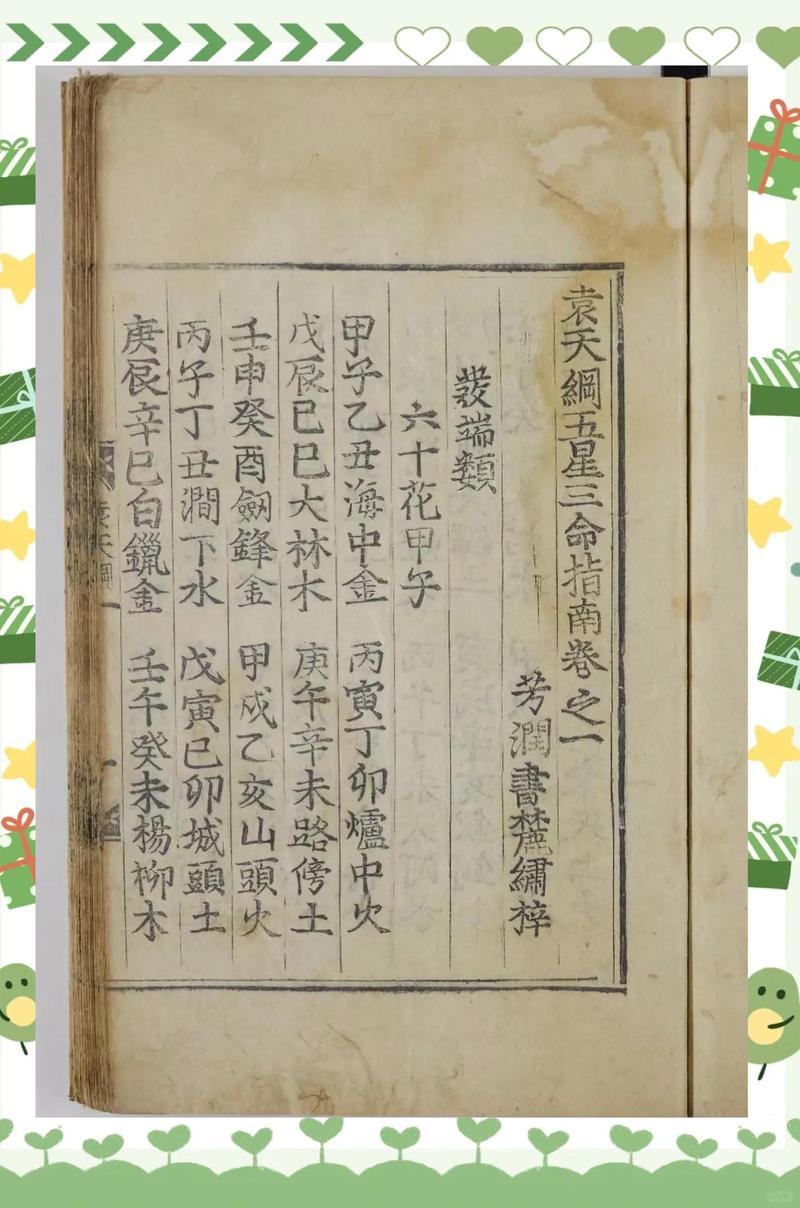 袁天綱五星三命指南卷之一
芳澗書麓繡梓
發端類
六十花甲子
甲子乙丑海中金 丙寅丁卯爐中火
戊辰己巳大林木 庚午辛未路傍土
壬申癸酉劒鋒金 甲戌乙亥山頭火
丙子丁丑澗下水 戊寅己卯城頭土
庚辰辛巳白鑞金 壬午癸未楊柳木
袁天綱一